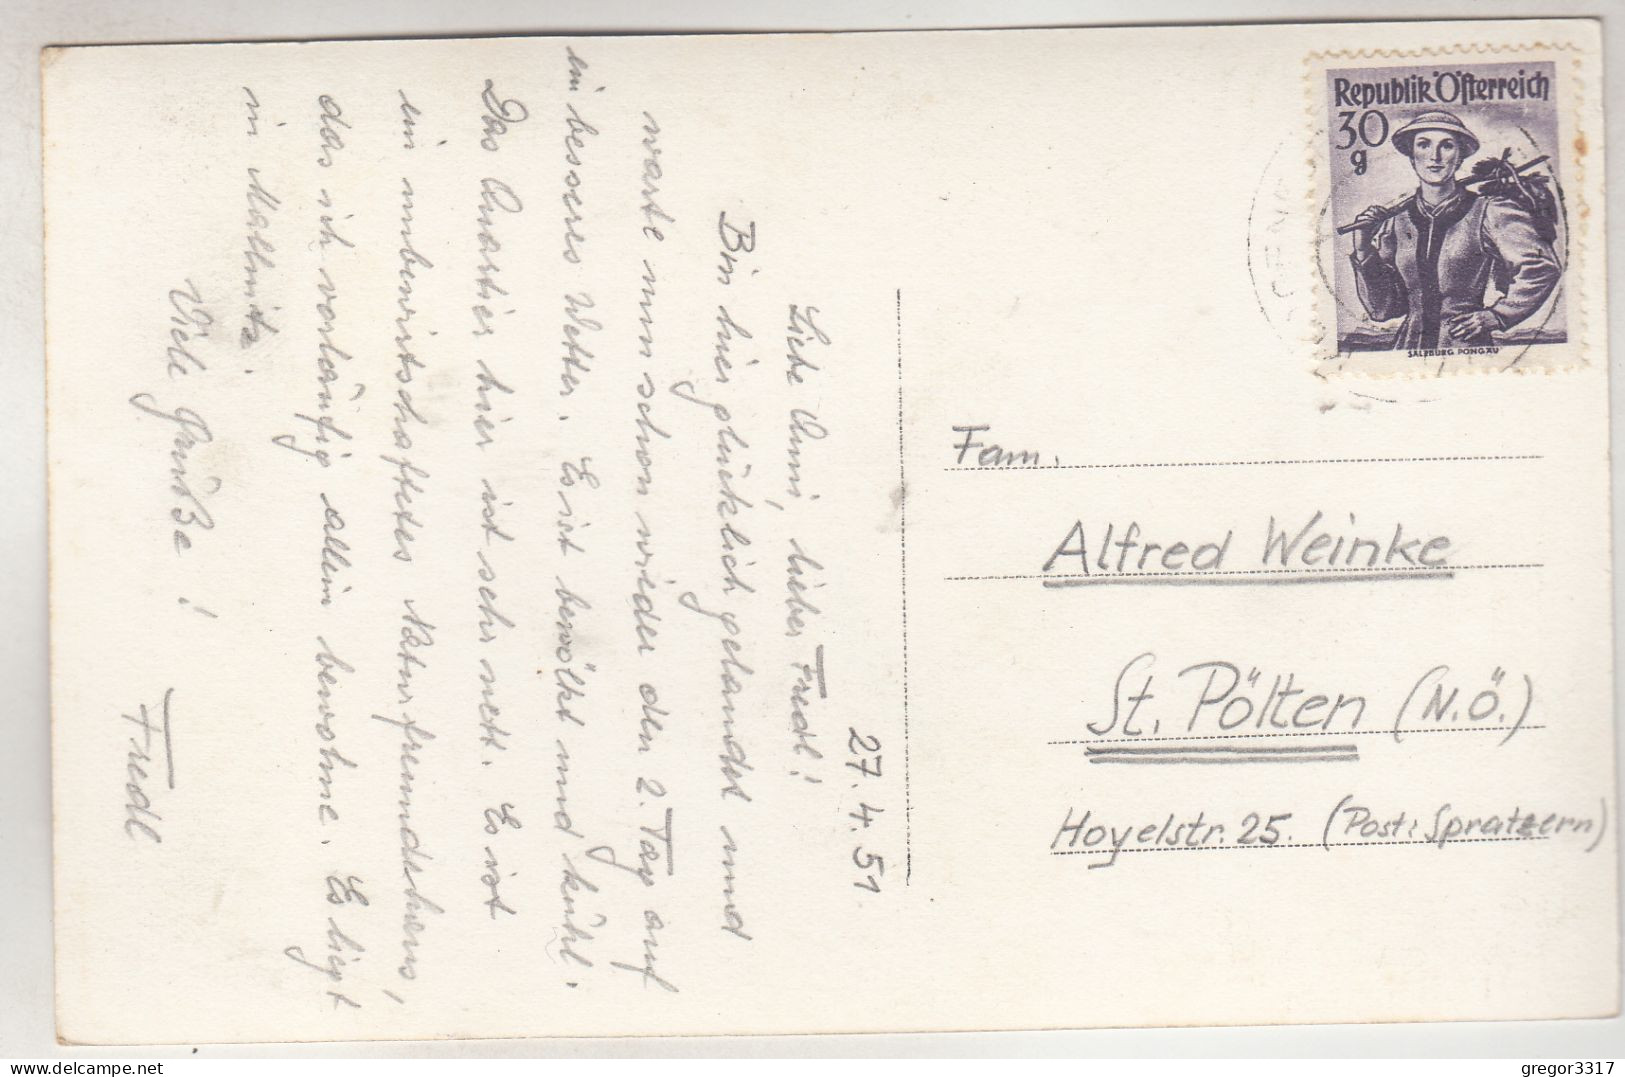 27.4.51.
Liebe Anni, lieber Fredl!
Bin hier glücklich gelandet und
warte nun schon wieder den 2. Tag auf
ein besseres Wetter. Es ist bewölkt und kühl.
Das Quartier hier ist sehr nett. Es ist
ein unbewirtschaftetes Naturfreundehaus,
das ich vorläufig allein bewohne. Es liegt
in Mallnitz.
Viele Grüße!
Fredl
Republik Österreich
30
g
SALZBURG PONGAU
Fam.
Alfred Weinke
St. Pölten (N.Ö.)
Hoyelstr. 25. (Post: Spratzern)
delcampe.net
gregor3317